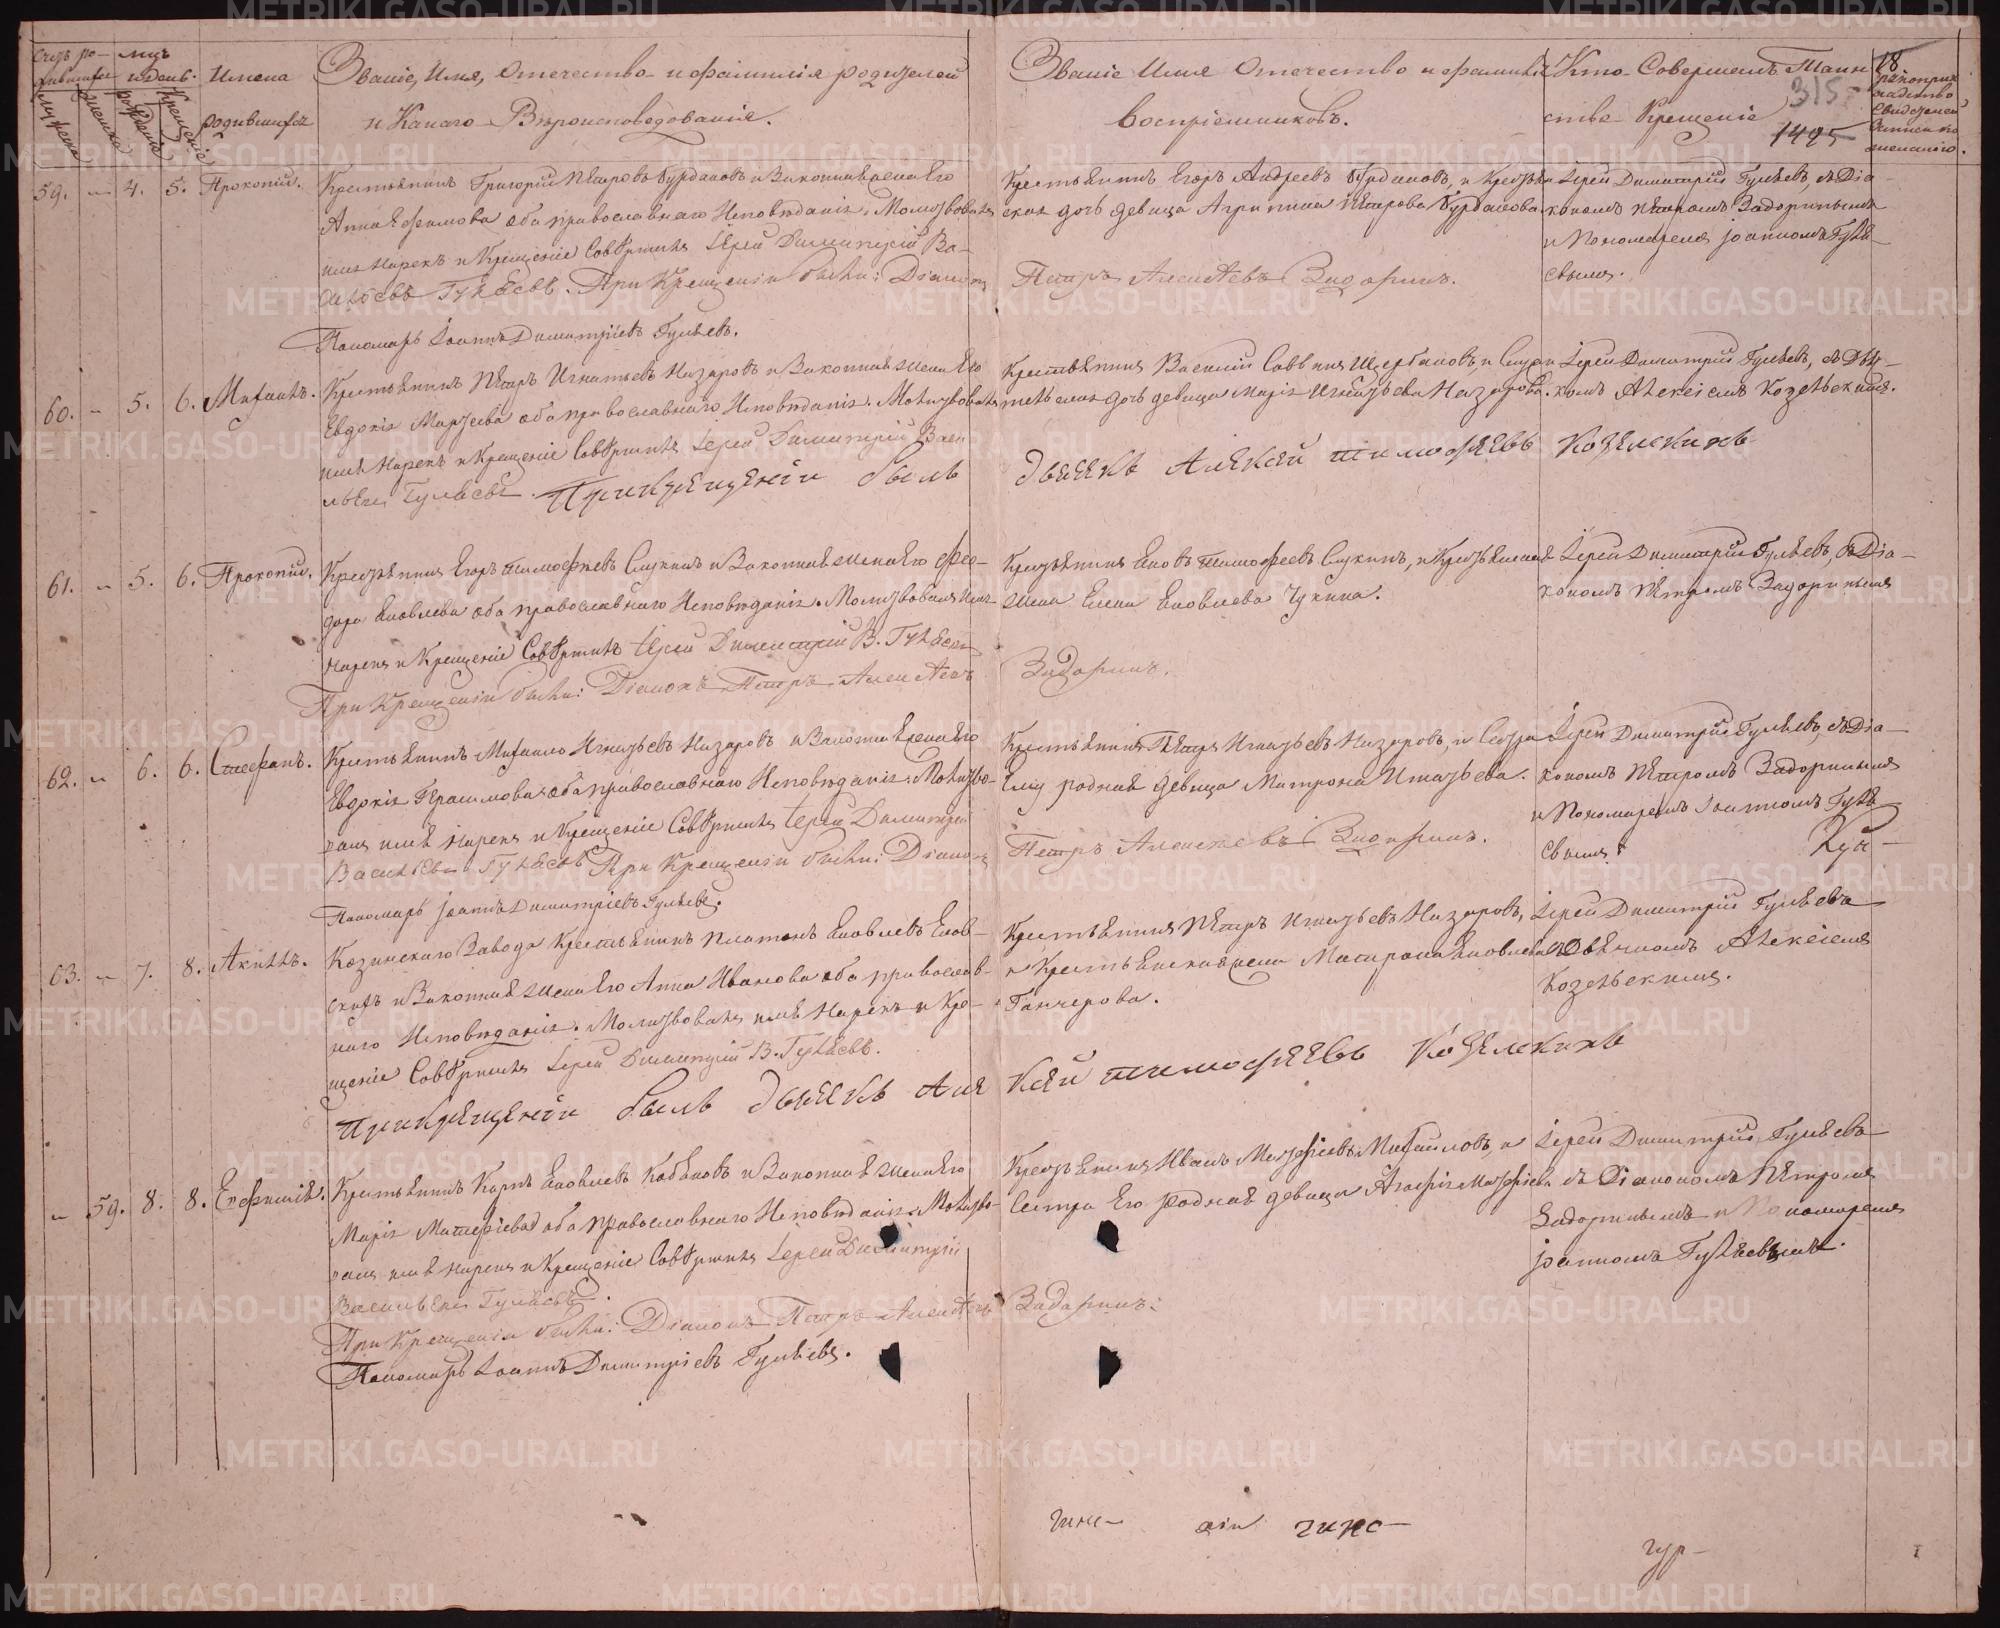 Счетъ родившихся
мужеска
женска
Мцъ и день
рожденіе
крещеніе
Имена
родившихся
Званіе, Имя, Отечество и фамилія родителей
и Какаго Вѣроисповедованія.
Званіе Имя Отечество и фамилія
воспріемниковъ.
Кто Совершалъ Таин
ство Крещенія
315
1495
Рукоприк
ладство
Свидетелей
59. – 4. 5. Прокопій.
Крестьянинъ Григорій Петровъ Бурдаковъ и Законная жена Его
Анна Ефимова оба православнаго Исповѣданія. Молитвовалъ
имя Нарекъ и Крещеніе Совѣршилъ Іерей Димитрій Ва-
сильевъ Гуляевъ. При Крещеніи были: Діаконъ
Пономарь Іоаннъ Димитріевъ Гуляевъ.
Крестьянинъ Егоръ Андреевъ Бурдаковъ, и Крестьян
ская дочь девица Агрипина Петрова Бурдакова.
Петръ Алексѣевъ Задоринъ.
Іерей Димитрій Гуляевъ, съ Діа-
кономъ Петромъ Задоринымъ
и Пономаремъ Іоанномъ Гуля-
евымъ.
60. – 5. 6. Михаилъ.
Крестьянинъ Петръ Игнатьевъ Назаровъ и Законная жена Его
Евдокія оба православнаго Исповѣданія. Молитвовалъ
имя Нарекъ и Крещеніе Совѣршилъ Іерей Димитрій Васи
льевъ Гуляевъ. При крещеніи былъ
Крестьянинъ Василій Саввинъ Щербаковъ, и
дочь девица Марія Игнатьева Назарова.
дьячекъ Алексей тимофѣевъ Козелскихъ
Іерей Димитрій Гуляевъ, съ Дьяч-
комъ Алексіемъ Козельскимъ.
61. – 5. 6. Прокопій.
Крестьянинъ Егоръ Тимофѣевъ Слукинъ и Законная жена Его Фео-
дора Яковлева оба православнаго Исповѣданія. Молитвовалъ имя
нарекъ и Крещеніе Совѣршилъ Іерей Димитрій В. Гуляевъ
При Крещеніи были: Діаконъ Петръ Алексѣевъ
Крестьянинъ Яковъ Тимофеевъ Слукинъ, и Крестьянская
жена Елена Яковлева Чукина.
Задоринъ.
Іерей Димитрій Гуляевъ, съ Діа-
кономъ Петромъ Задоринымъ
62. – 6. 6. Стефанъ.
Крестьянинъ Михаило Игнатьевъ Назаровъ и Законная жена Его
Евдокія Герасимова оба православнаго Исповѣданія. Молитво-
валъ имя Нарекъ и Крещеніе Совѣршилъ Іерей Димитрій
Васильевъ Гуляевъ При Крещеніи были: Діаконъ
Пономарь Іоаннъ Димитріевъ Гуляевъ.
Крестьянинъ Петръ Игнатьевъ Назаровъ, и Сестра
Ему родная девица Матрона Игнатьева.
Петръ Алексеевъ Задоринъ.
Іерей Димитрій Гуляевъ, съ Діа-
кономъ Петромъ Задоринымъ
и Пономаремъ Іоанномъ Гуля
евымъ.
63. – 7. 8. Акилъ.
Казинскаго Завода Крестьянинъ Платонъ Яковлевъ
и Законная жена Его Анна Иванова оба православ-
наго Исповѣданія. Молитвовалъ имя Нарекъ и Кре-
щеніе Совѣршилъ Іерей Димитрій В. Гуляевъ.
При крещеніи былъ дьячекъ Але
Крестьянинъ Петръ Игнатьевъ Назаровъ,
и Крестьянская жена Матрона Яковлева
Ганчерова.
ксей тимофѣевъ Козелскихъ
Іерей Димитрій Гуляевъ
съ Дьячкомъ Алексіемъ
Козельскимъ.
– 59. 8. 8. Евфимія.
Крестьянинъ Карпъ Яковлевъ Кабаковъ и Законная жена Его
Марія Матфіева оба православнаго Исповѣданія. Молитво-
валъ имя нарекъ и Крещеніе Совѣршилъ Іерей Димитрій
Васильевъ Гуляевъ.
При Крещеніи были: Діаконъ Петръ Алексѣевъ
Пономарь Іоаннъ Димитріевъ Гуляевъ.
Крестьянинъ Иванъ Матфіевъ Михайловъ, и
Сестра Его родная девица Агафія Матфіева
Задоринъ.
Іерей Димитрій Гуляевъ
съ Діакономъ Петромъ
Задоринымъ и Пономаремъ
Іоанномъ Гуляевымъ.
METRIKI.GASO-URAL.RU